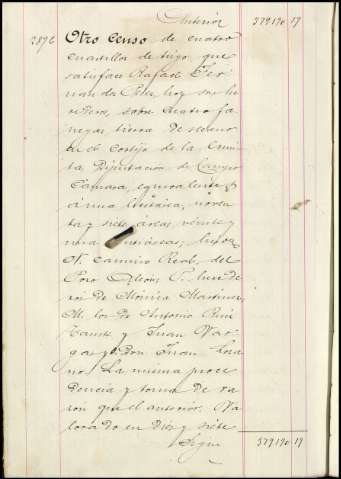 Anterior 579.190 17
2876 Otro Censo de cuatro
cuartillos de trigo, que
satisface Rafael Fer
nandez, hoy sus he
rederos, sobre cuatro fa
negas tierra de secano
en el Cortijo de la Ermi
ta Diputación de Campo
Cámara, equivalente á
á una hectárea, noven
ta y siete áreas, veinte y
una centiáreas, linda
N. Camino Real, del
Pozo L. here de
ros de Mónica Martinez
M. los de Antonio Ruiz
y Juan Var
gas y P. Don Juan Loza
no. La misma proce
dencia y toma de ra
zon que el anterior. Va
lorado en Diez y siete
Sigue 579.190 17